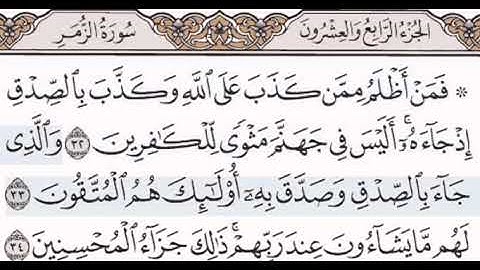 سُورَةُ الزُّمَرِ الجُزْءُ الرَّابِعُ وَالعِشْرُونَ
* فَمَنْ أَظْلَمُ مِمَّن كَذَبَ عَلَى اللَّهِ وَكَذَّبَ بِالصِّدْقِ
إِذْ جَاءَهُۥٓۚ أَلَيْسَ فِي جَهَنَّمَ مَثْوًى لِّلْكَافِرِينَ ٣٢ وَالَّذِي
جَاءَ بِالصِّدْقِ وَصَدَّقَ بِهِۦٓ أُولَٰئِكَ هُمُ الْمُتَّقُونَ ٣٣
لَهُم مَّا يَشَاءُونَ عِندَ رَبِّهِمْۚ ذَٰلِكَ جَزَاءُ الْمُحْسِنِينَ ٣٤